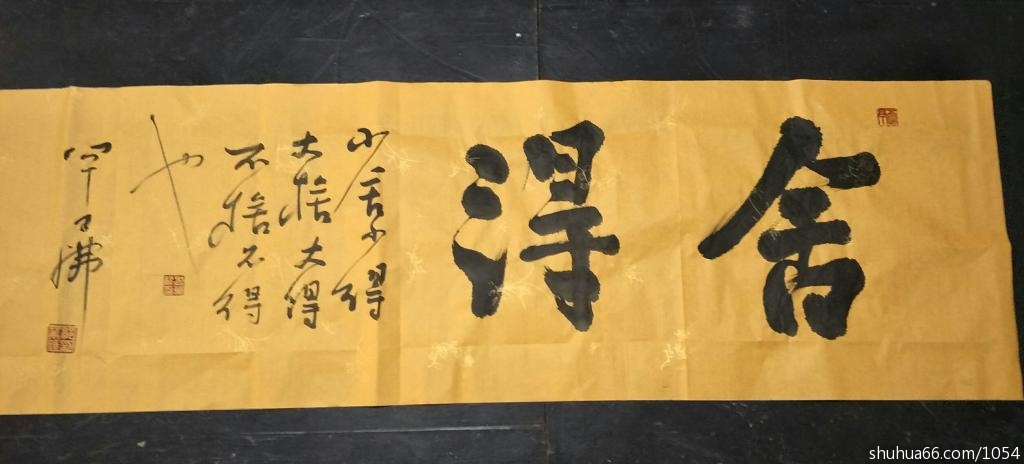 舍得
小舍小得
大捨大得
不捨不得
也
shuhua66.com/1054